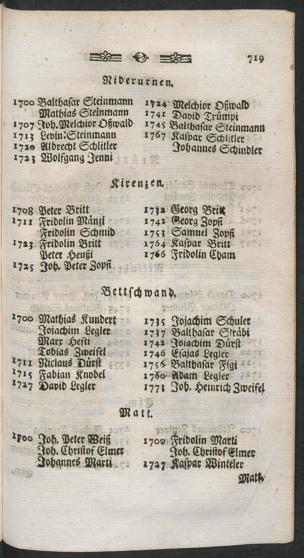 719
Niderurnen.
1700 Balthasar Steinmann
Mathias Steinmann
1707 Joh. Melchior Oßwald
1713 Levin: Steinmann
1720 Albrecht Schlitler
1723 Wolfgang Jenni
1724 Melchior Oßwald
1741 David Trümpi
1745 Balthasar Steinmann
1767 Kaspar Schlitler
Johannes Schindler
Kirenzen.
1708 Peter Britt
1711 Fridolin Mänzi
Fridolin Schmid
1723 Fridolin Britt
Peter Heußi
1725 Joh. Peter Zopfi
1732 Georg Britt
1742 Georg Zopfi
1753 Samuel Zopfi
1764 Kaspar Britt
1766 Fridolin Cham
Bettschwand.
1700 Mathias Kundert
Joiachim Legler
Marx Hefti
Tobias Zweifel
1711 Niclaus Dürst
1715 Fabian Knobel
1727 David Legler
1735 Joiachim Schuler
1737 Balthasar Sträbi
1742 Joiachim Dürst
1746 Esajas Legler
1756 Balthasar Figi
1760 Adam Legler
1773 Joh. Heinrich Zweifel
Matt.
1700 Joh. Peter Weiß
Joh. Christof Elmer
Johannes Marti
1700 Fridolin Marti
Joh. Christof Elmer
1727 Kaspar Winteler
Matt.